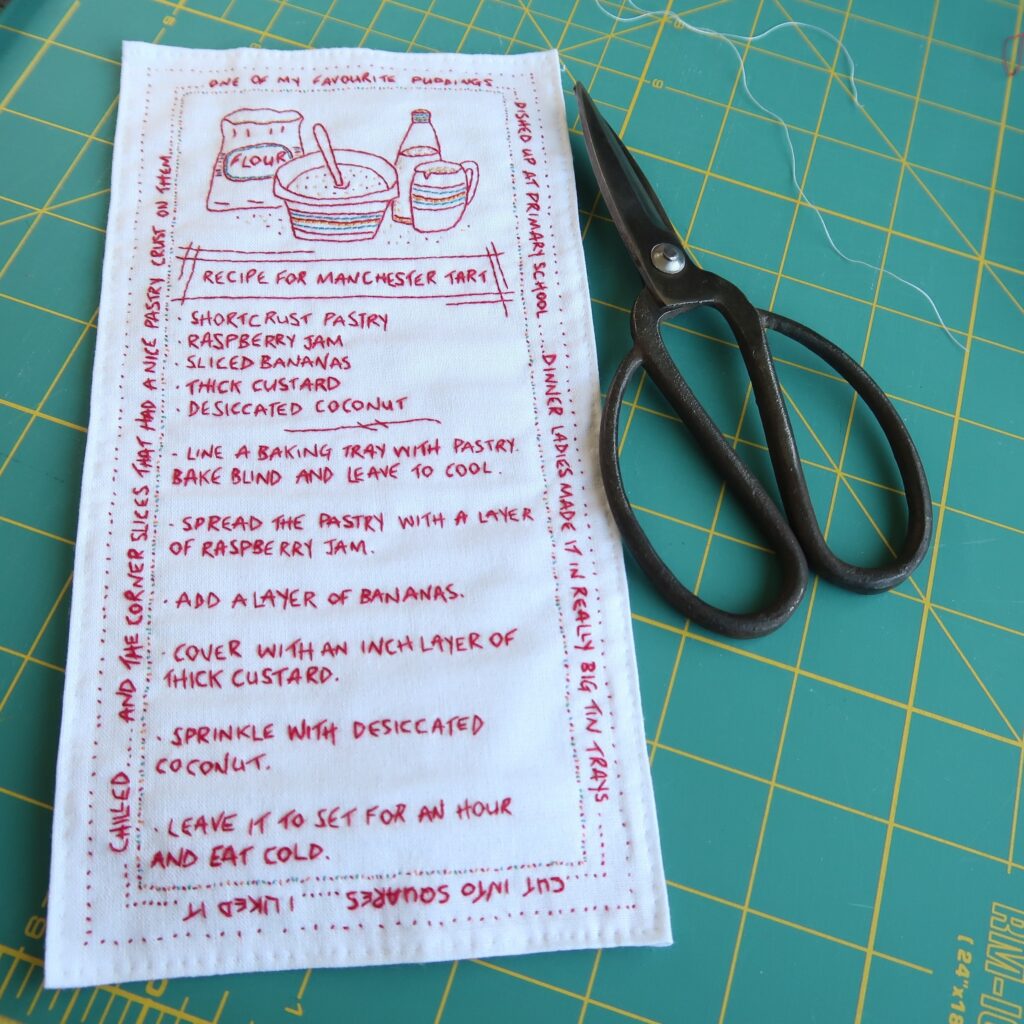 ONE OF MY FAVOURITE PUDDINGS
DISHED UP AT PRIMARY SCHOOL ... DINNER LADIES MADE IT IN REALLY BIG TIN TRAYS
CUT INTO SQUARES
I LIKED IT
CHILLED... AND THE CORNER SLICES THAT HAD A NICE PASTRY CRUST ON THEM
FLOUR
RECIPE FOR MANCHESTER TART
· SHORTCRUST PASTRY
· RASPBERRY JAM
· SLICED BANANAS
· THICK CUSTARD
· DESICCATED COCONUT
· LINE A BAKING TRAY WITH PASTRY.
BAKE BLIND AND LEAVE TO COOL.
· SPREAD THE PASTRY WITH A LAYER
OF RASPBERRY JAM.
· ADD A LAYER OF BANANAS.
· COVER WITH AN INCH LAYER OF
THICK CUSTARD.
· SPRINKLE WITH DESICCATED
COCONUT.
· LEAVE IT TO SET FOR AN HOUR
AND EAT COLD.